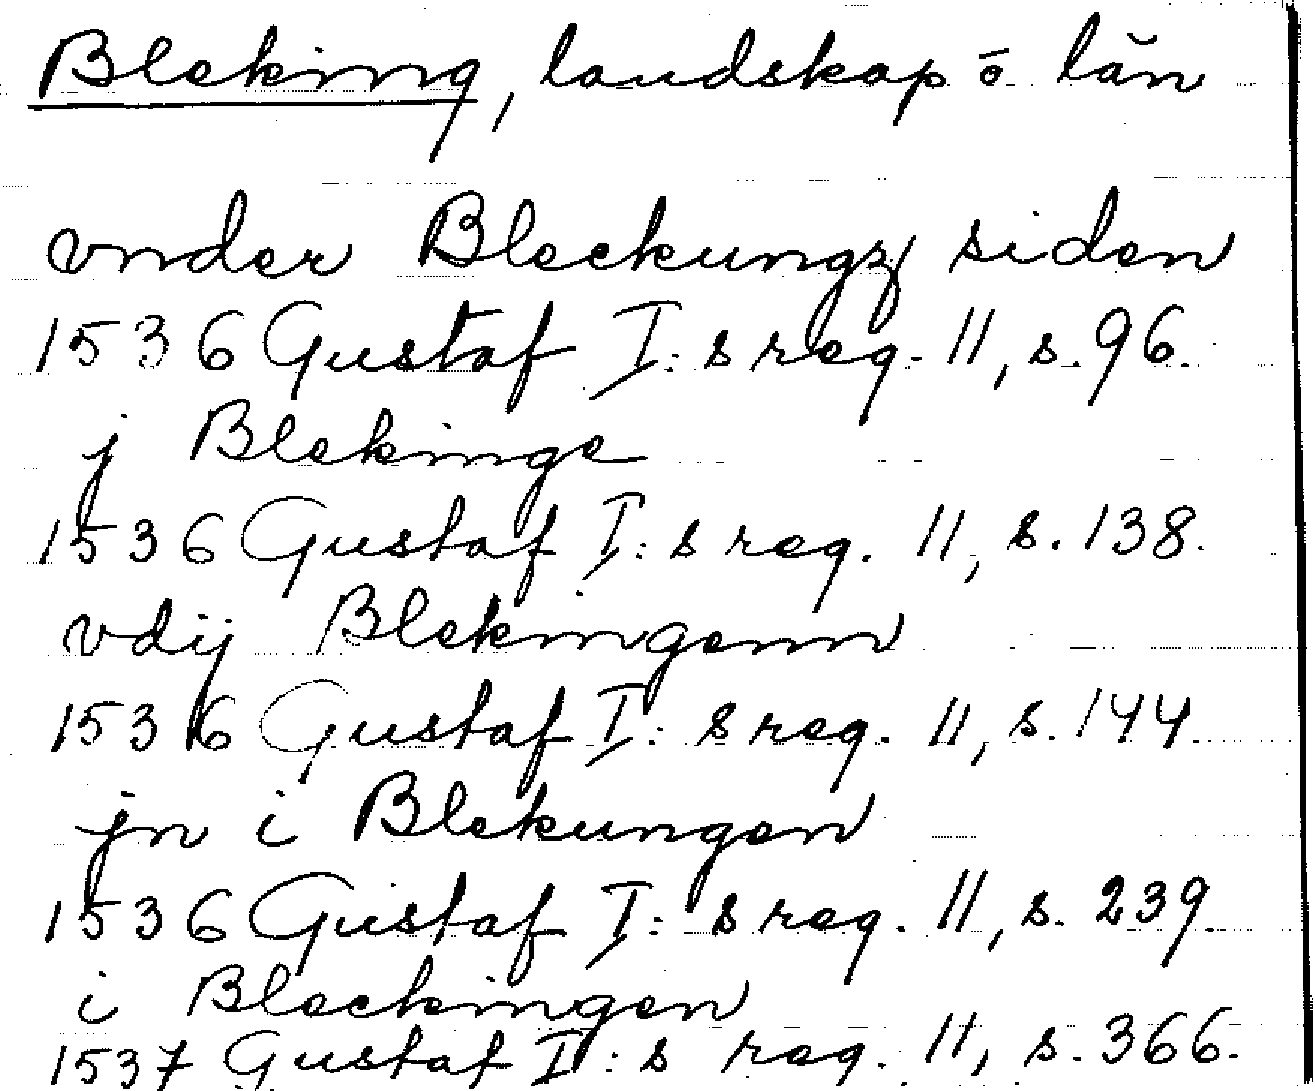 Bleking, landskap o län
vnder Bleckungz siden
1536 Gustaf I:s reg. 11, s. 96.
j Blekinge
1536 Gustaf I:s reg. 11, s. 138.
vdij Blekingenn
1536 Gustaf I:s reg. 11, s. 144.
jn i Blekungen
1536 Gustaf I:s reg. 11, s. 239.
i Bleckingen
1537 Gustaf I:s reg. 11, s. 366.